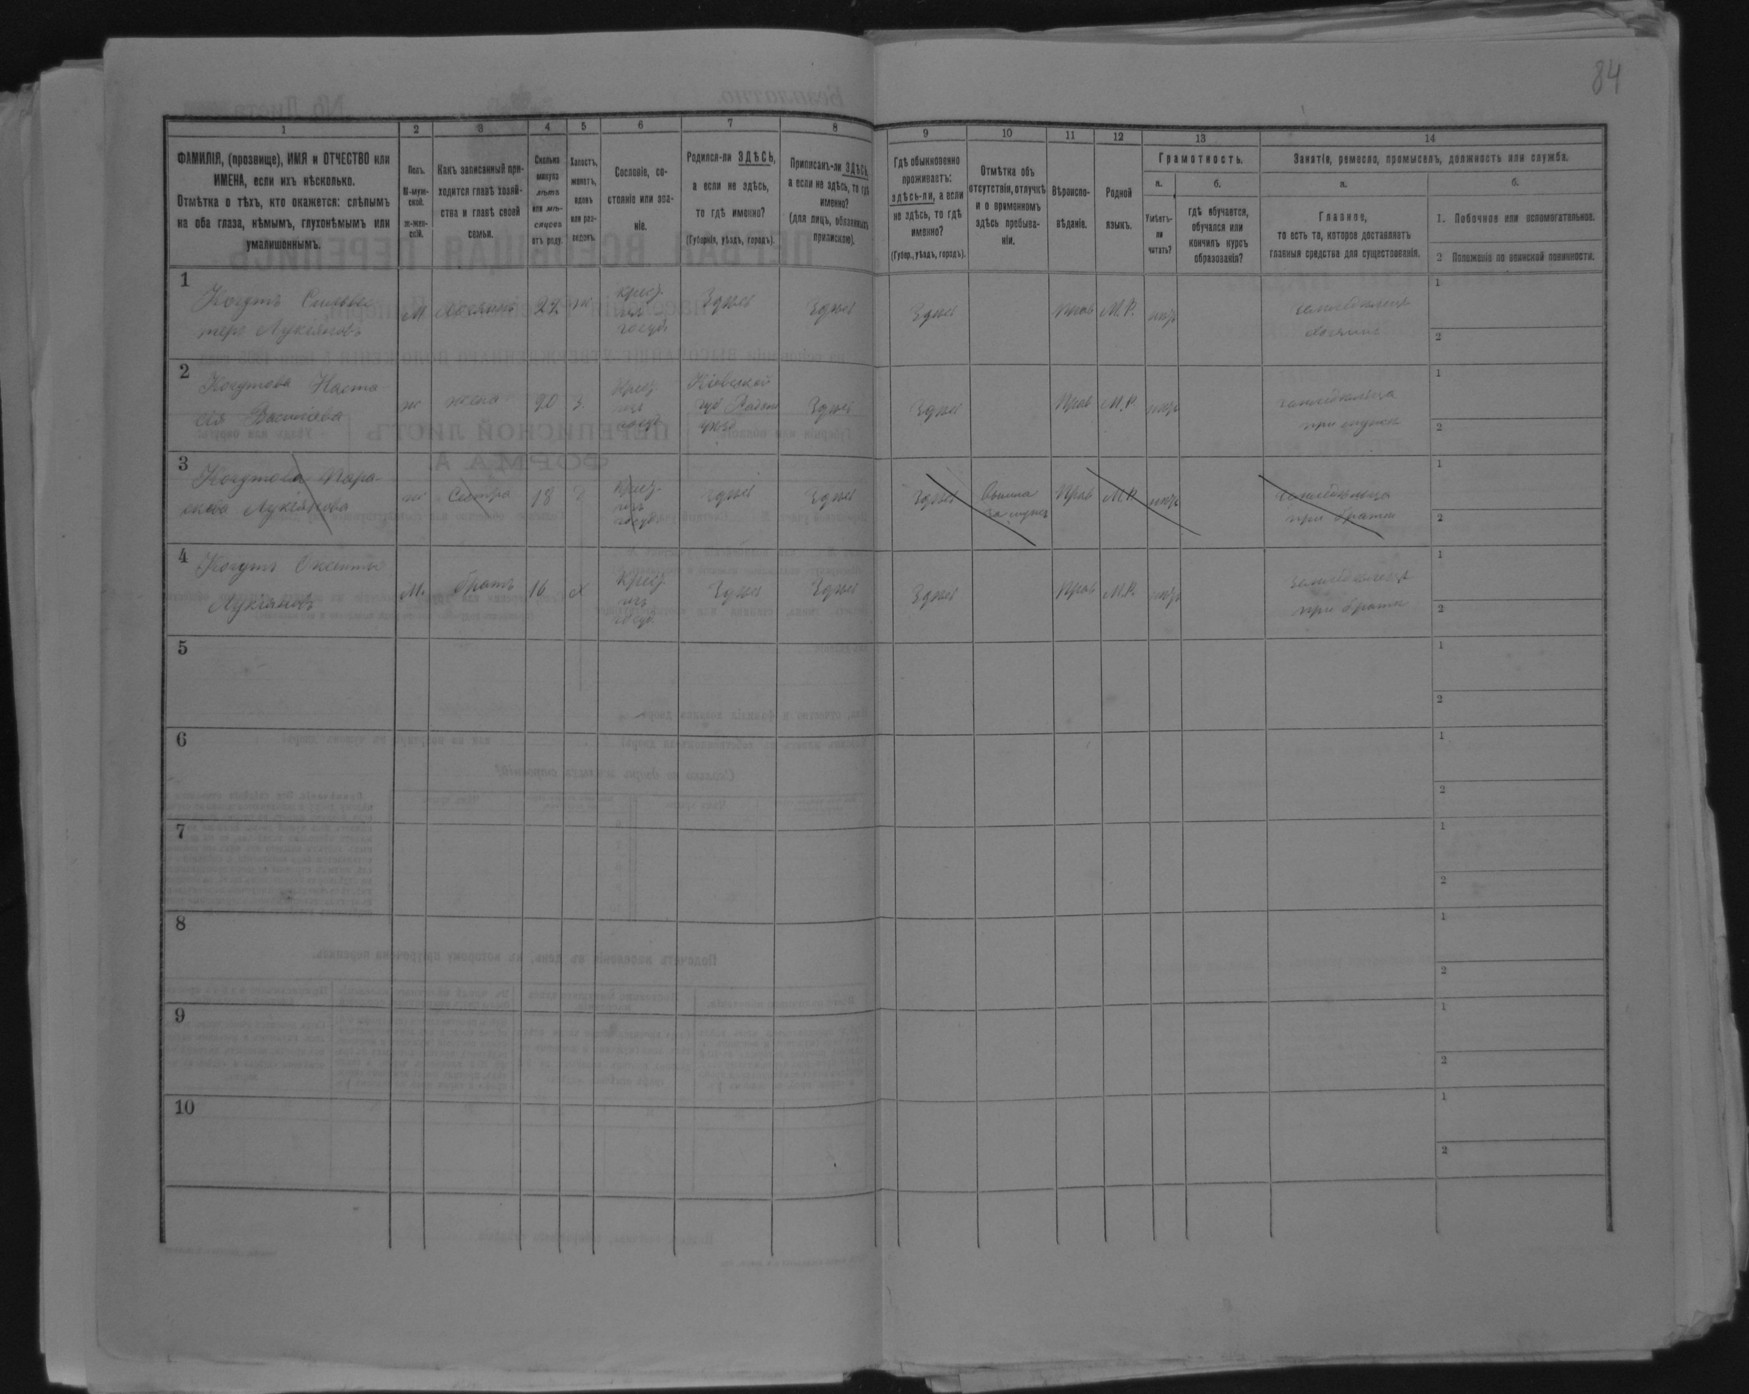 84
1
2
3
4
5
6
7
8
9
10
11
12
13
14
ФАМИЛІЯ, (прозвище), ИМЯ и ОТЧЕСТВО или
ИМЕНА, если ихъ нѣсколько.
Отмѣтка о тѣхъ, кто окажется: слѣпымъ
на оба глаза, нѣмымъ, глухонѣмымъ или
умалишоннымъ.
Полъ.
М-муж-
ской.
ж-жен-
скій.
Какъ записанный при-
ходится главѣ хозяй-
ства и главѣ своей
семьи.
Сколько
минуло
лѣтъ
или мѣ-
сяцевъ
отъ роду.
Холостъ,
женатъ,
вдовъ
или раз-
веденъ.
Сословіе, со-
стояніе или зва-
ніе.
Родился-ли ЗДѢСЬ,
а если не здѣсь,
то гдѣ именно?
(Губернія, уѣздъ, городъ).
Приписанъ-ли ЗДѢСЬ,
а если не здѣсь, то гдѣ
именно?
(для лицъ, обязанныхъ
припискою).
Гдѣ обыкновенно
проживаетъ:
здѣсь-ли, а если
не здѣсь, то гдѣ
именно?
(Губер., уѣздъ, городъ).
Отмѣтка объ
отсутствіи, отлучкѣ
и о временномъ
здѣсь пребыва-
ніи.
Вѣроиспо-
вѣданіе.
Родной
языкъ.
Грамотность.
а.
б.
Умѣетъ-
ли
читать?
гдѣ обучается,
обучался или
кончилъ курсъ
образованія?
Занятіе, ремесло, промыселъ, должность или служба.
а.
б.
Главное,
то есть то, которое доставляетъ
главныя средства для существованія.
1. Побочное или вспомогательное.
2 Положеніе по воинской повинности.
1
Когутъ
Лукіановъ
М
хозяинъ
22
ж
крест.
изъ
госуд
Здѣсь
Здѣсь
Здѣсь
прав
М.Р.
нѣтъ
земледѣлецъ
хозяинъ
1
2
2
Когутова Наста
сія Василіева
ж
жена
20
З.
крест.
изъ
госуд
Кіевской
губ
уѣзд
Здѣсь
Здѣсь
Прав
М.Р.
нѣтъ
земледѣлица
при мужѣ
1
2
3
Когутова Пара
скева Лукіянова
ж
Сестра
18
крест.
изъ
госуд
здѣсь
Здѣсь
Здѣсь
Вышла
за мужъ
Прав
М.Р.
нѣтъ
земледѣлица
при братѣ
1
2
4
Когутъ
Лукіановъ
М.
братъ
16
х
крест.
изъ
госуд
Здѣсь
Здѣсь
Здѣсь
Прав
М.Р.
нѣтъ
земледѣлецъ
при братѣ
1
2
5
1
2
6
1
2
7
1
2
8
1
2
9
1
2
10
1
2